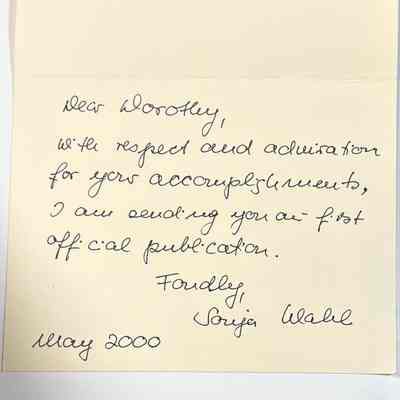 Dear Dorothy,
with respect and admiration
for your accomplishments,
I am sending you our first
official publication.
Fondly,
Sonja Wahl
May 2000